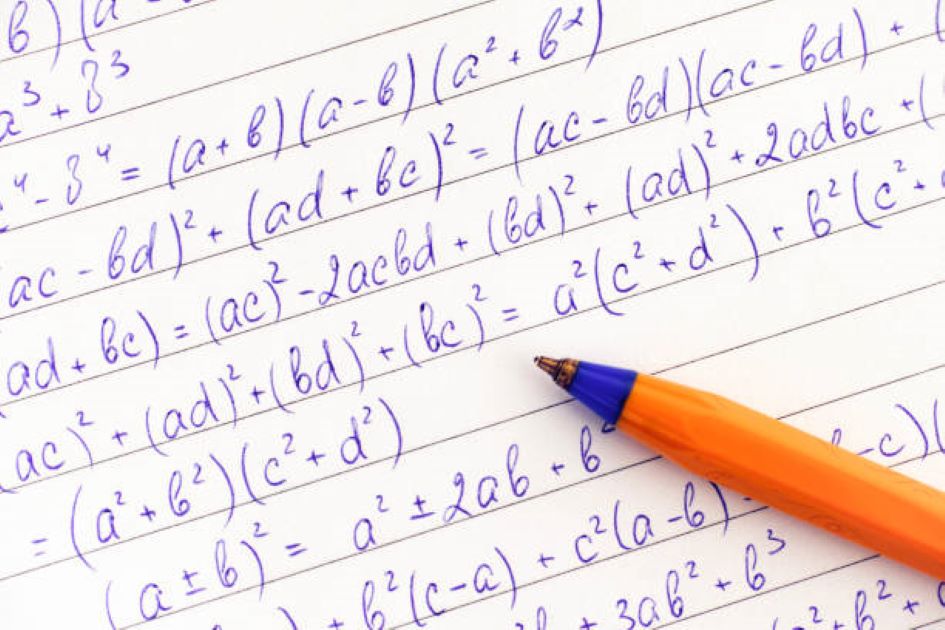 b)(a
a³ + b³
⁴ - b⁴ = (a + b)(a - b)(a² + b²)
(ac - bd)² + (ad + bc)² = (ac - bd)(ac - bd) + (
(ad + bc) = (ac)² - 2acbd + (bd)² + (ad)² + 2adbc + (
(ac)² + (ad)² + (bd)² + (bc)² = a²(c² + d²) + b²(c² +
= (a² + b²)(c² + d²)
(a ± b)² = a² ± 2ab + b² - c)(
) + b²(c - a) + c²(a - b)
+ 3ab² + b³ a² + b² +